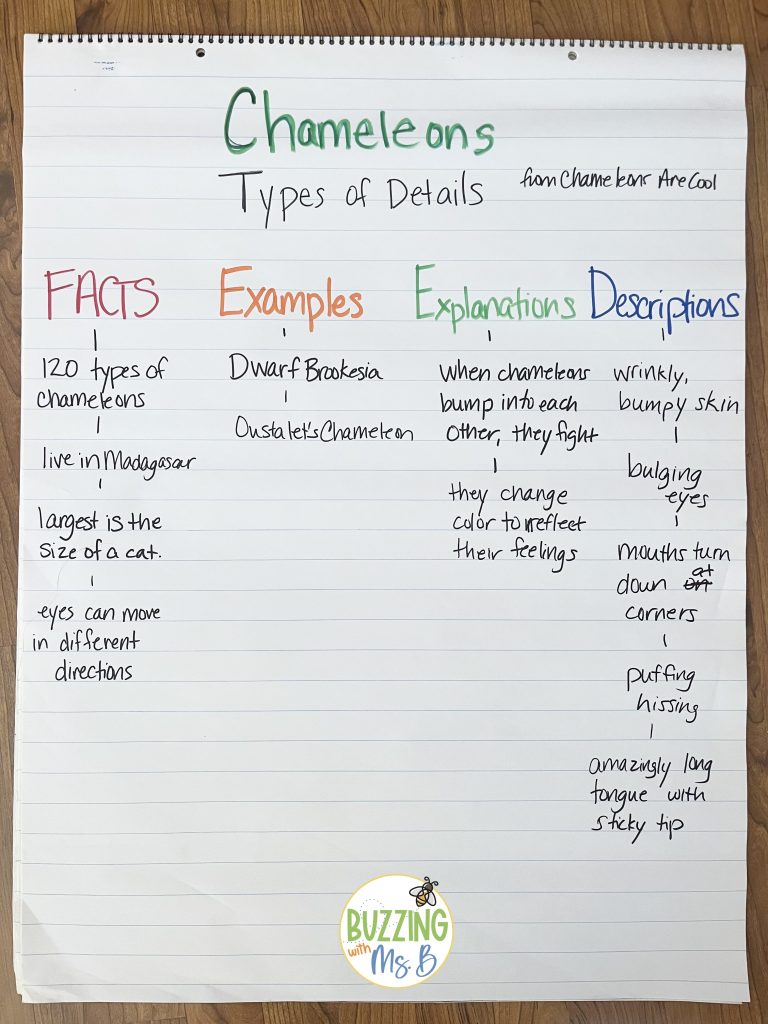 Chameleons
Types of Details
from Chameleons Are Cool
FACTS
120 types of
chameleons
live in Madagascar
largest is the
size of a cat.
eyes can move
in different
directions
Examples
Dwarf Brookesia
Oustalet's Chameleon
Explanations
when chameleons
bump into each
other, they fight
they change
color to reflect
their feelings
Descriptions
wrinkly,
bumpy skin
bulging
eyes
mouths turn
down at
corners
puffing
hissing
amazingly long
tongue with
sticky tip
BUZZING
with
Ms. B